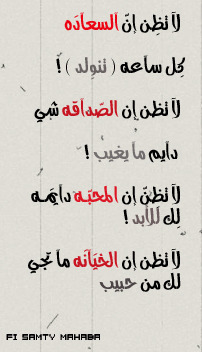 لآ تظِن إنّ ألسعآدَه
كِل سآعه ( تنولد ) !
لآ تظن إن الصّدآقه شي
دآيم مآ يغيب !
لآ تظنّ إن المحبّـه دآيمَـه
لِك للأبد !
لآ تظن إن الخيَآنَه مآ تجي
لك من حبيب
FI SAMTY MAHABA